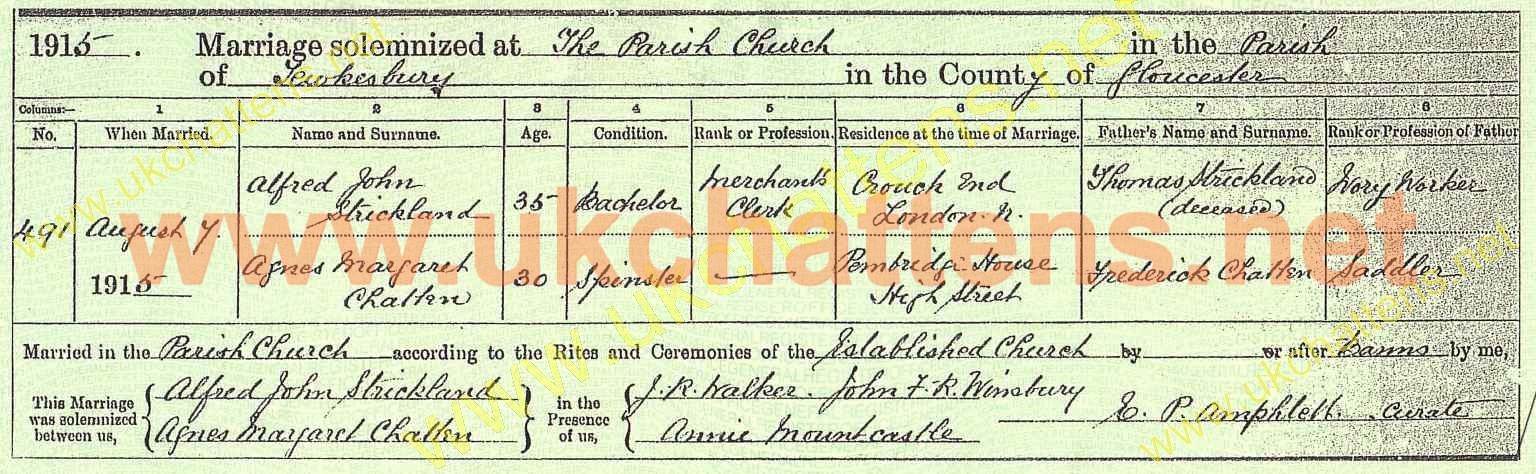 1915. Marriage solemnized at The Parish Church in the Parish
of Tewkesbury in the County of Gloucester
Columns:— 1 2 3 4 5 6 7 8
No. When Married. Name and Surname. Age. Condition. Rank or Profession. Residence at the time of Marriage. Father's Name and Surname. Rank or Profession of Father
491 August 7 1915 Alfred John Strickland 35 Bachelor Merchants Clerk Crouch End London. N. Thomas Strickland (deceased) Ivory Worker
Agnes Margaret Chatten 30 Spinster — Pembridge House High Street Frederick Chatten Saddler
Married in the Parish Church according to the Rites and Ceremonies of the Established Church by or after Banns by me,
This Marriage was solemnized between us, Alfred John Strickland Agnes Margaret Chatten in the Presence of us, J. R. Walker. John F. R. Winsbury Annie Mountcastle E. P. Amphlett. Curate
www.ukchattens.net
www.ukchattens.net
www.ukchattens.net
www.ukchattens.net